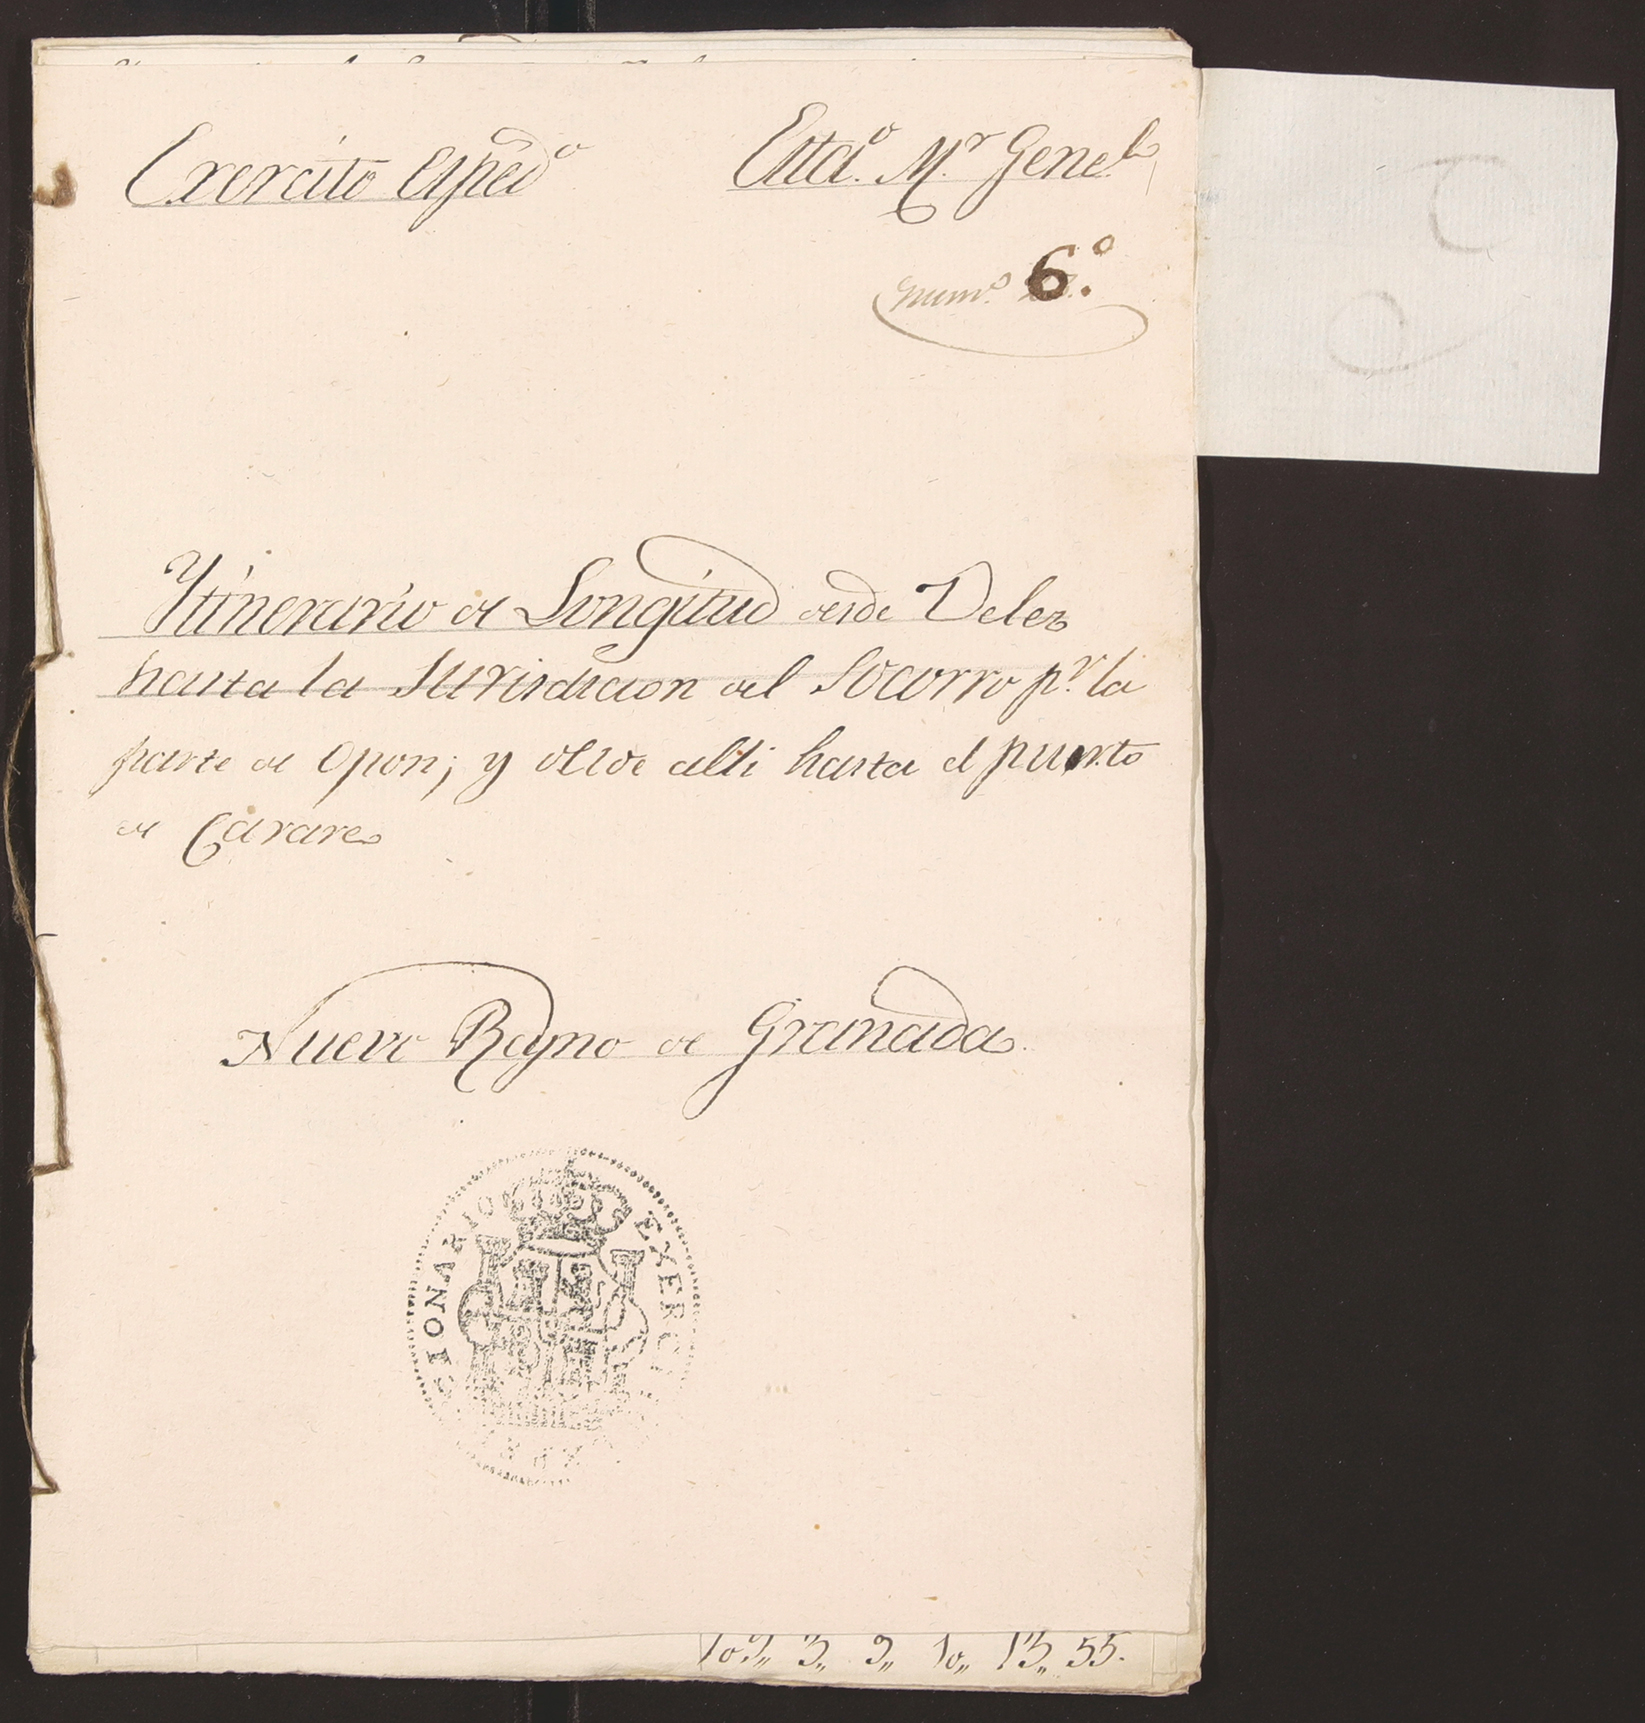 Exercito Exped.º
Estdº. M.r Gene.l
num.º 6.º
Ytinerario de Longitud desde Velez
hasta la Jurisdicion del Socorro p.r la
parte de Opon; y desde alli hasta el puerto
de Carare
Nuevo Reyno de Granada.
EXERCI SIONARIO
3,, 9,, 10,, 13,, 55.